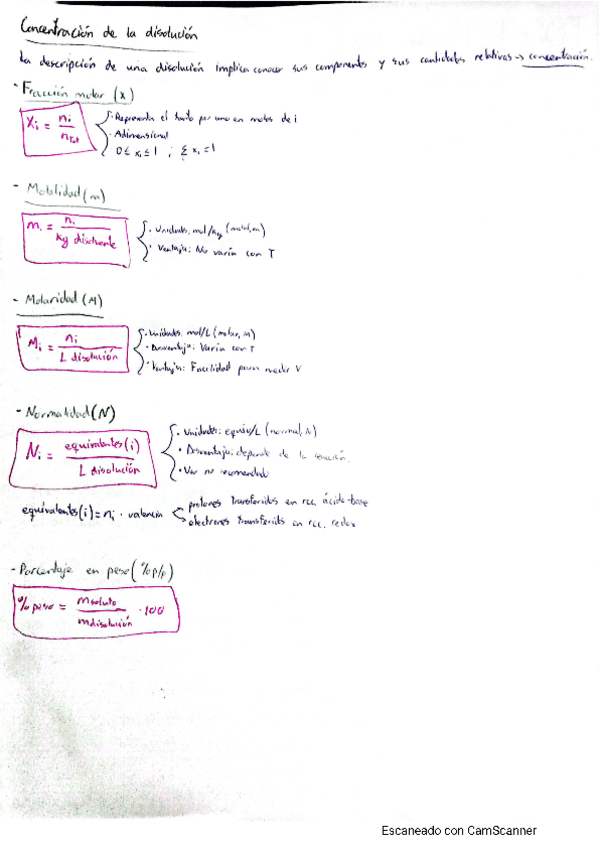 Concentración de la disolución
La descripción de una disolución implica conocer sus componentes y sus cantidades relativas → concentración.
- Fracción molar (X)
Xi = ni / nTot
· Representa el tanto por uno en moles de i
· Adimensional
0 ≤ xi ≤ 1 ; Σ xi = 1
- Molalidad (m)
mi = ni / Kg disolvente
· Unidades: mol/Kg (molal, m)
· Ventaja: No varía con T
- Molaridad (M)
Mi = ni / L disolución
· Unidades: mol/L (molar, M)
· Desventaja: Varía con T
· Ventaja: Facilidad para medir V
- Normalidad (N)
Ni = equivalentes(i) / L disolución
· Unidades: equiv/L (normal, N)
· Desventaja: depende de la reacción.
· Uso no recomendado
equivalentes(i) = ni · valencia
protones transferidos en rcc. ácido-base
electrones transferidos en rcc. redox
- Porcentaje en peso (%p/p)
% peso = msoluto / mdisolución · 100
Escaneado con CamScanner